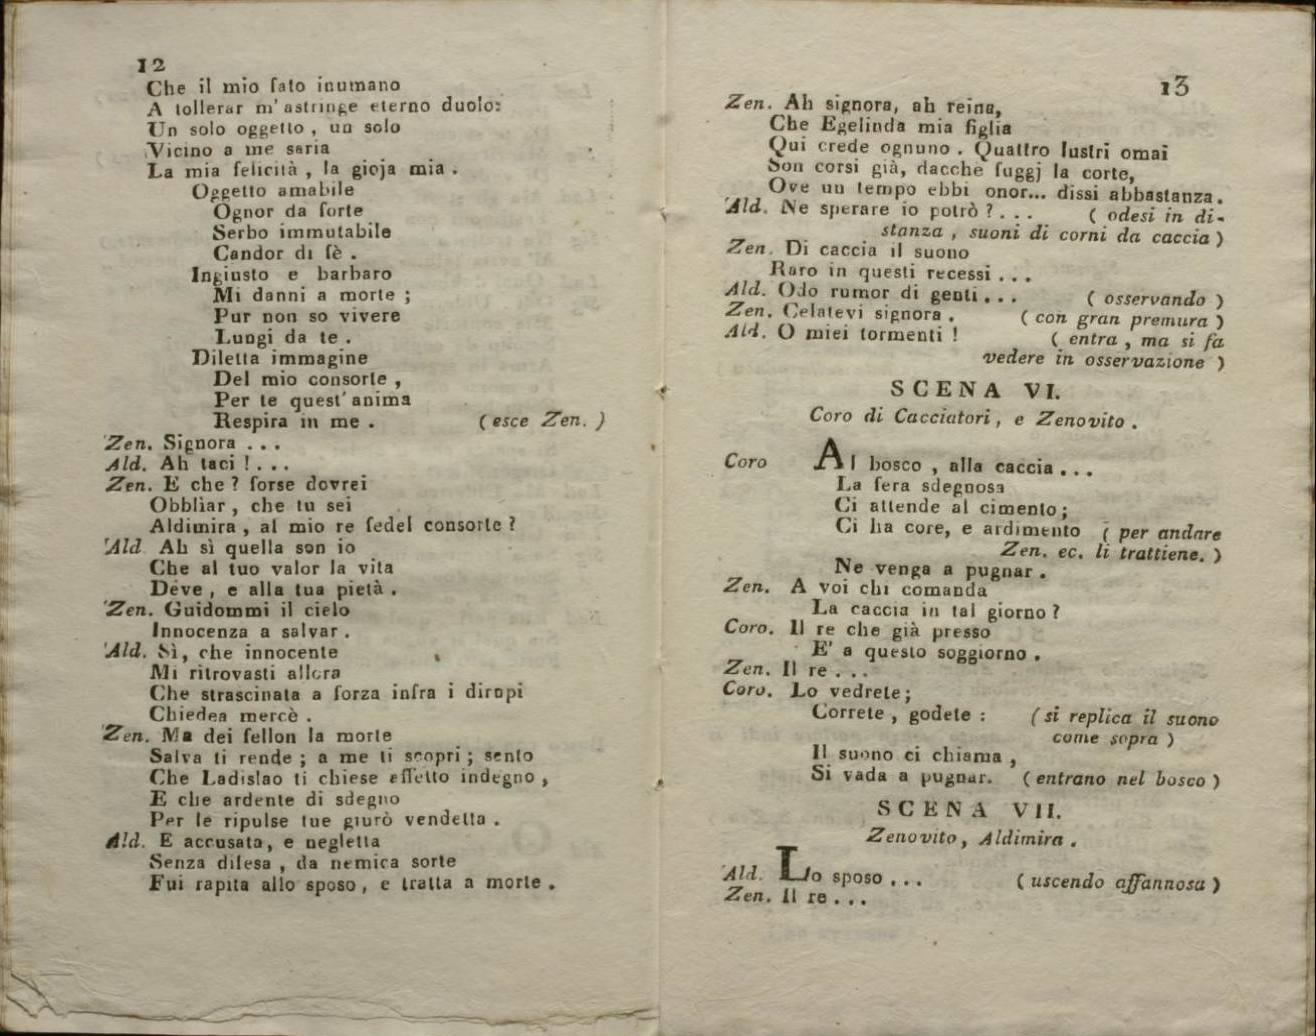 12
Che il mio fato inumano
A tollerar m'astringe eterno duolo:
Un solo oggetto, un solo
Vicino a me saria
La mia felicità, la gioja mia.
Oggetto amabile
Ognor da forte
Serbo immutabile
Candor di fè.
Ingiusto e barbaro
Mi danni a morte;
Pur non so vivere
Lungi da te.
Diletta immagine
Del mio consorte,
Per te quest'anima
Respira in me. (esce Zen.)
Zen. Signora ...
Ald. Ah taci! ...
Zen. E che? forse dovrei
Obblìar, che tu sei
Aldimira, al mio re fedel consorte?
Ald Ah sì quella son io
Che al tuo valor la vita
Deve, e alla tua pietà.
Zen. Guidommi il cielo
Innocenza a salvar.
Ald. Sì, che innocente
Mi ritrovasti allora
Che strascinata a forza infra i dirupi
Chiedea mercè.
Zen. Ma dei fellon la morte
Salva ti rende; a me ti scopri; sento
Che Ladislao ti chiese effetto indegno,
E che ardente di sdegno
Per le ripulse tue giurò vendetta.
Ald. E accusata, e negletta
Senza difesa, da nemica sorte
Fui rapita allo sposo, e tratta a morte.
13
Zen. Ah signora, ah reina,
Che Egelinda mia figlia
Qui crede ognuno. Quattro lustri omai
Son corsi già, dacchè fuggj la corte,
Ove un tempo ebbi onor... dissi abbastanza.
Ald. Ne sperare io potrò? ... (odesi in di-
stanza, suoni di corni da caccia)
Zen. Di caccia il suono
Raro in questi recessi ...
Ald. Odo rumor di genti ... (osservando)
Zen. Celatevi signora. (con gran premura)
Ald. O miei tormenti! (entra, ma si fa
vedere in osservazione)
SCENA VI.
Coro di Cacciatori, e Zenovito.
Coro Al bosco, alla caccia ...
La fera sdegnosa
Ci attende al cimento;
Ci ha core, e ardimento (per andare
Zen. ec. li trattiene.)
Ne venga a pugnar.
Zen. A voi chi comanda
La caccia in tal giorno?
Coro. Il re che già presso
E' a questo soggiorno.
Zen. Il re ...
Coro. Lo vedrete;
Correte, godete: (si replica il suono
come sopra)
Il suono ci chiama,
Si vada a pugnar. (entrano nel bosco)
SCENA VII.
Zenovito, Aldimira.
Ald. Lo sposo ... (uscendo affannosa)
Zen. Il re ...